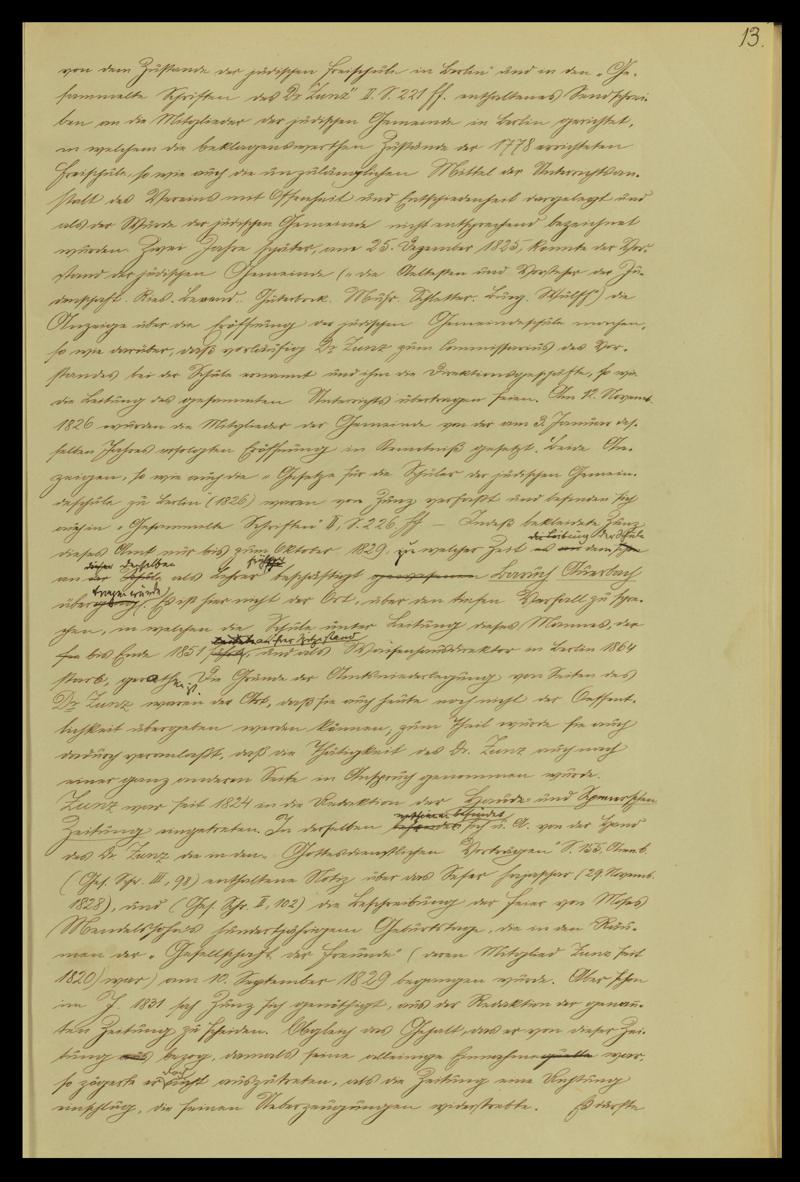 13.
von dem Zustande der jüdischen Freischule in Berlin" und in den „Ge-
sammelte Schriften des Dr Zunz" II. S. 221 ff. enthaltenes Sendschrei-
ben an die Mitglieder der jüdischen Gemeinde in Berlin gerichtet,
in welchem die beklagenswerthen Zustände der 1778 errichteten
Freischule, so wie auch die unzulänglichen Mittel der Unterrichtsan-
stalt des Vereins mit Offenheit und Entschiedenheit dargelegt und
als der Würde der jüdischen Gemeinde nicht entsprechend bezeichnet
wurden. Zwei Jahre später, am 25. Dezember 1825, konnte der Vor-
stand der jüdischen Gemeinde („die Aeltesten und Vorsteher der Ju-
denschaft. Ries. Berend. Gumbert. Muhr. Schlesser. Burg. Wulff") die
Anzeige über die Eröffnung der jüdischen Gemeindeschule machen,
so wie darüber, daß vorläufig Dr Zunz zum Commissarius des Vor-
standes bei der Schule ernannt und ihm die Direktionsgeschäfte, so wie
die Leitung des gesammten Unterrichts übertragen seien. Am 12. Novemb.
1826 wurden die Mitglieder der Gemeinde von der am 3. Januar des-
selben Jahres erfolgten Eröffnung in Kenntniß gesetzt. Beide An-
zeigen, so wie auch die „Gesetze für die Schüler der jüdischen Gemein-
deschule zu Berlin (1826) waren von Zunz verfaßt und befinden sich
auch in „Gesammelte Schriften" II, S. 226 ff — Indeß bekleidete Zunz
dieses Amt nur bis zum Oktober 1829, zu welcher Zeit die Leitung der Schule dem schon
an der Schule derselben als Lehrer früher beschäftigt gewesenen Baruch Auerbach
übertragen wurde. Es ist hier nicht der Ort, über den tiefen Verfall zu spre-
chen, in welchen die Schule unter Leitung dieses Mannes, der
sie bis Ende 1851 und als Waisenhausdirektor in Berlin 1864
starb, gerathen ist. Die Gründe der Amtsniederlegung von Seiten des
Dr Zunz waren der Art, daß sie auch heute noch nicht der Oeffent-
lichkeit übergeben werden können; zum Theil wurde sie auch
dadurch veranlaßt, daß die Thätigkeit des Dr. Zunz auch nach
einer ganz anderen Seite in Anspruch genommen wurde.
Zunz war seit 1824 in die Redaktion der Haude- und Spenerschen
Zeitung eingetreten. In derselben befindet sich u. A. von der Hand
des Dr Zunz die in den „Gottesdienstlichen Vorträgen" S. 155, Anm. b.
(Ges. Schr. III, 98) enthaltene Notiz über das Sefer hajaschar (29. Novemb.
1828), und (Ges. Schr. II, 102) die Beschreibung der Feier von Moses
Mendelssohn's hundertjährigem Geburtstage, die in den Räu-
men der „Gesellschaft der Freunde" (deren Mitglied Zunz seit
1820 war) am 10. September 1829 begangen wurde. Aber schon
im J. 1831 sah Zunz sich genöthigt, aus der Redaktion der genan-
ten Zeitung zu scheiden. Obgleich das Gehalt, das er von dieser Zei-
tung bezog, damals seine alleinige Einnahmequelle war,
so zögerte er doch nicht auszutreten, als die Zeitung eine Richtung
einschlug, die seinen Ueberzeugungen widerstrebte. Es dürfte